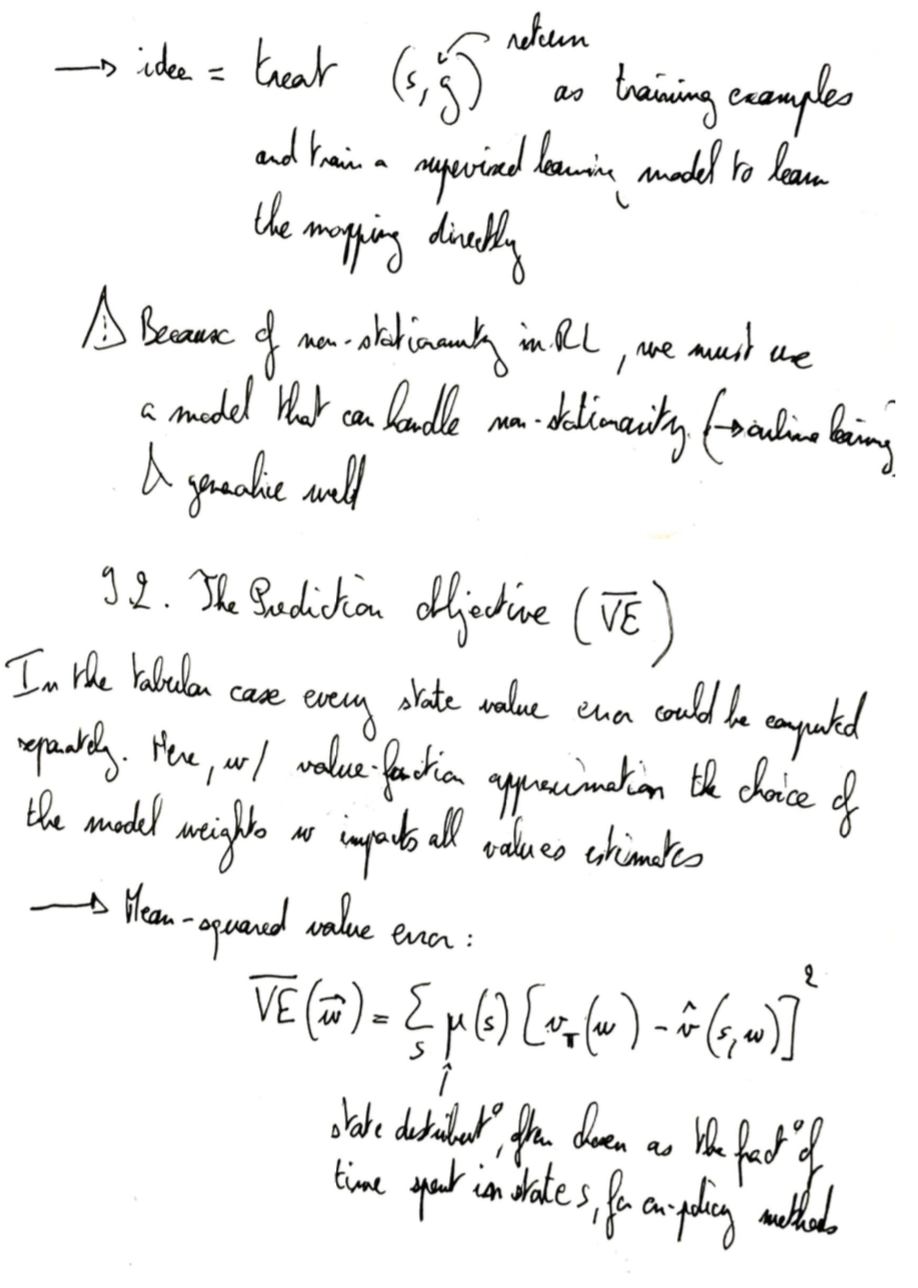 → idea = treat (s, g) ← return as training examples
and train a supervised learning model to learn
the mapping directly
⚠ Because of non-stationarity in RL, we must use
a model that can handle non-stationarity (→ online learning
& generalize well
9.2. The Prediction Objective (V̅E̅)
In the tabular case every state value error could be computed
separately. Here, w/ value-function approximation the choice of
the model weights w impacts all values estimates
→ Mean-squared value error:
V̅E̅(w⃗) = Σ_s μ(s) [v_π(w) - v̂(s, w)]²
↑
state distribut°, often chosen as the fract° of
time spent in state s, for on-policy methods